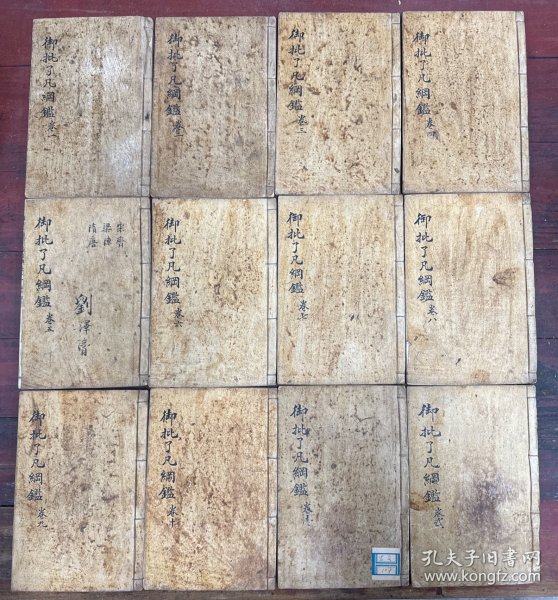 御批了凡綱鑑 卷一
御批了凡綱鑑 卷二
御批了凡綱鑑 卷三
御批了凡綱鑑 卷四
宋齊
梁陳
隋唐
御批了凡綱鑑 卷五
劉澤
御批了凡綱鑑 卷六
御批了凡綱鑑 卷七
御批了凡綱鑑 卷八
御批了凡綱鑑 卷九
御批了凡綱鑑 卷十
御批了凡綱鑑
御批了凡綱鑑
孔夫子旧书网
www.kongfz.com